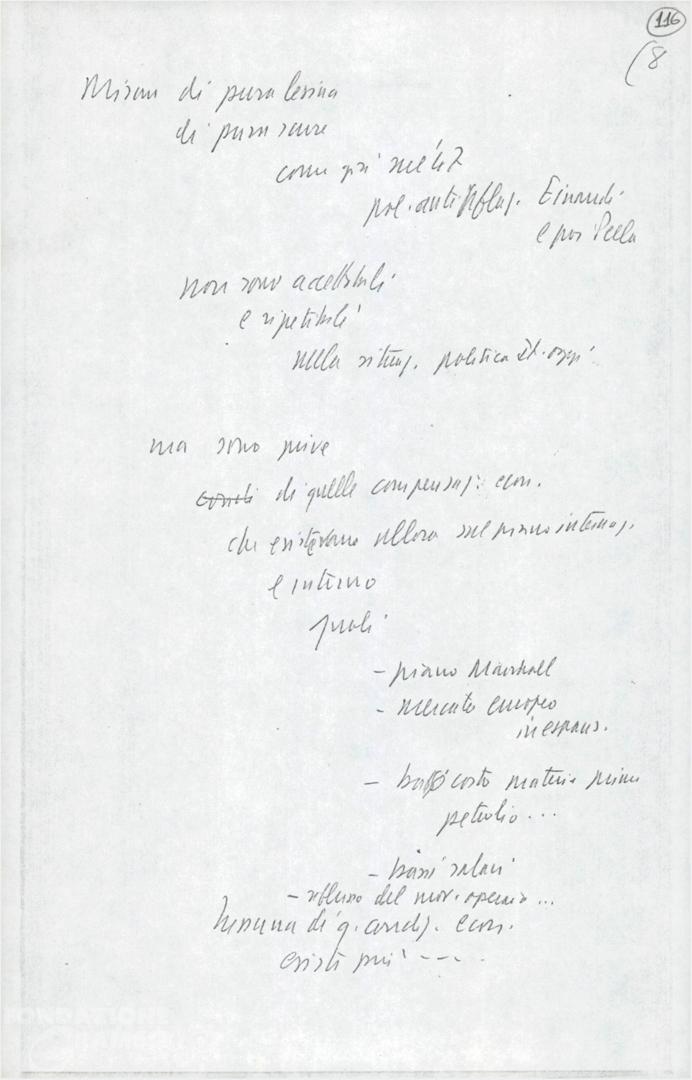 116
(8
Misure di pura lesina
di pura
come già nel '47
pol. antinflaz. Einaudi
e poi Pella
non sono accettabili
e ripetibili
nella situaz. politica it. oggi
ma sono prive
di quelle compensaz. econ.
che esistevano allora sul piano internaz.
e interno
quali
- piano Marshall
- mercato europeo
in espans.
- basso costo materie prime
petrolio ...
- bassi salari
- riflusso del mov. operaio ...
Nessuna di q. condiz. econ.
esiste più ---
FONDAZIONE